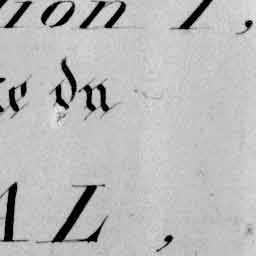 tion 1,
te du
AL,